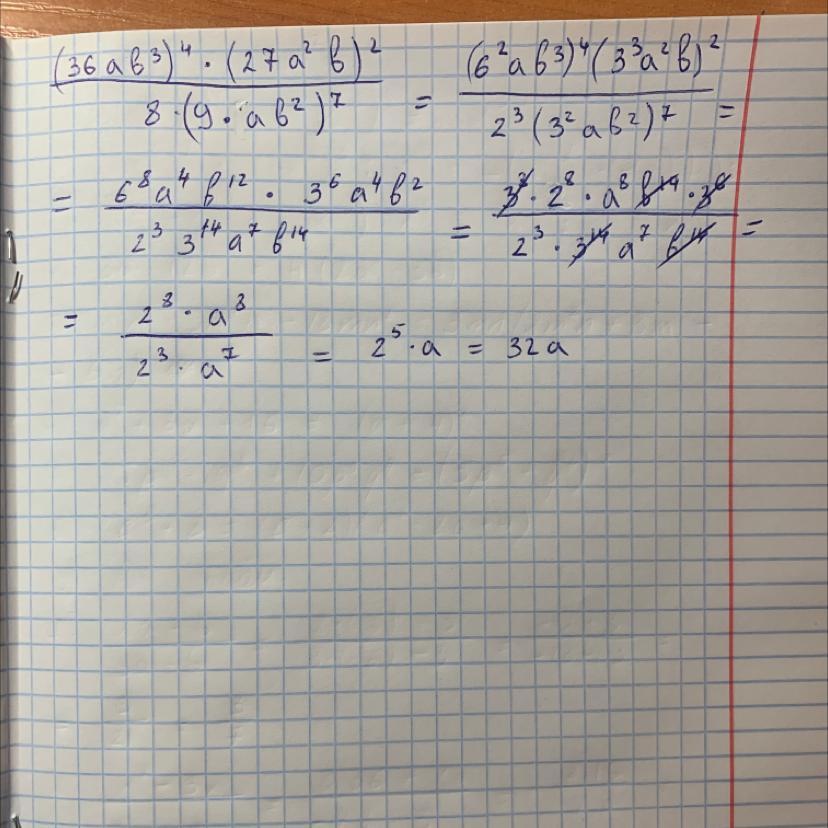 (36ab³)⁴ · (27a²b)² / 8 · (9 · ab²)⁷ = (6²ab³)⁴(3³a²b)² / 2³(3²ab²)⁷ =
= 6⁸a⁴b¹² · 3⁶a⁴b² / 2³ 3¹⁴a⁷b¹⁴ = 3⁸ · 2⁸ · a⁸b¹⁴ · 3⁶ / 2³ · 3¹⁴a⁷b¹⁴ =
= 2⁸ · a⁸ / 2³ · a⁷ = 2⁵ · a = 32a